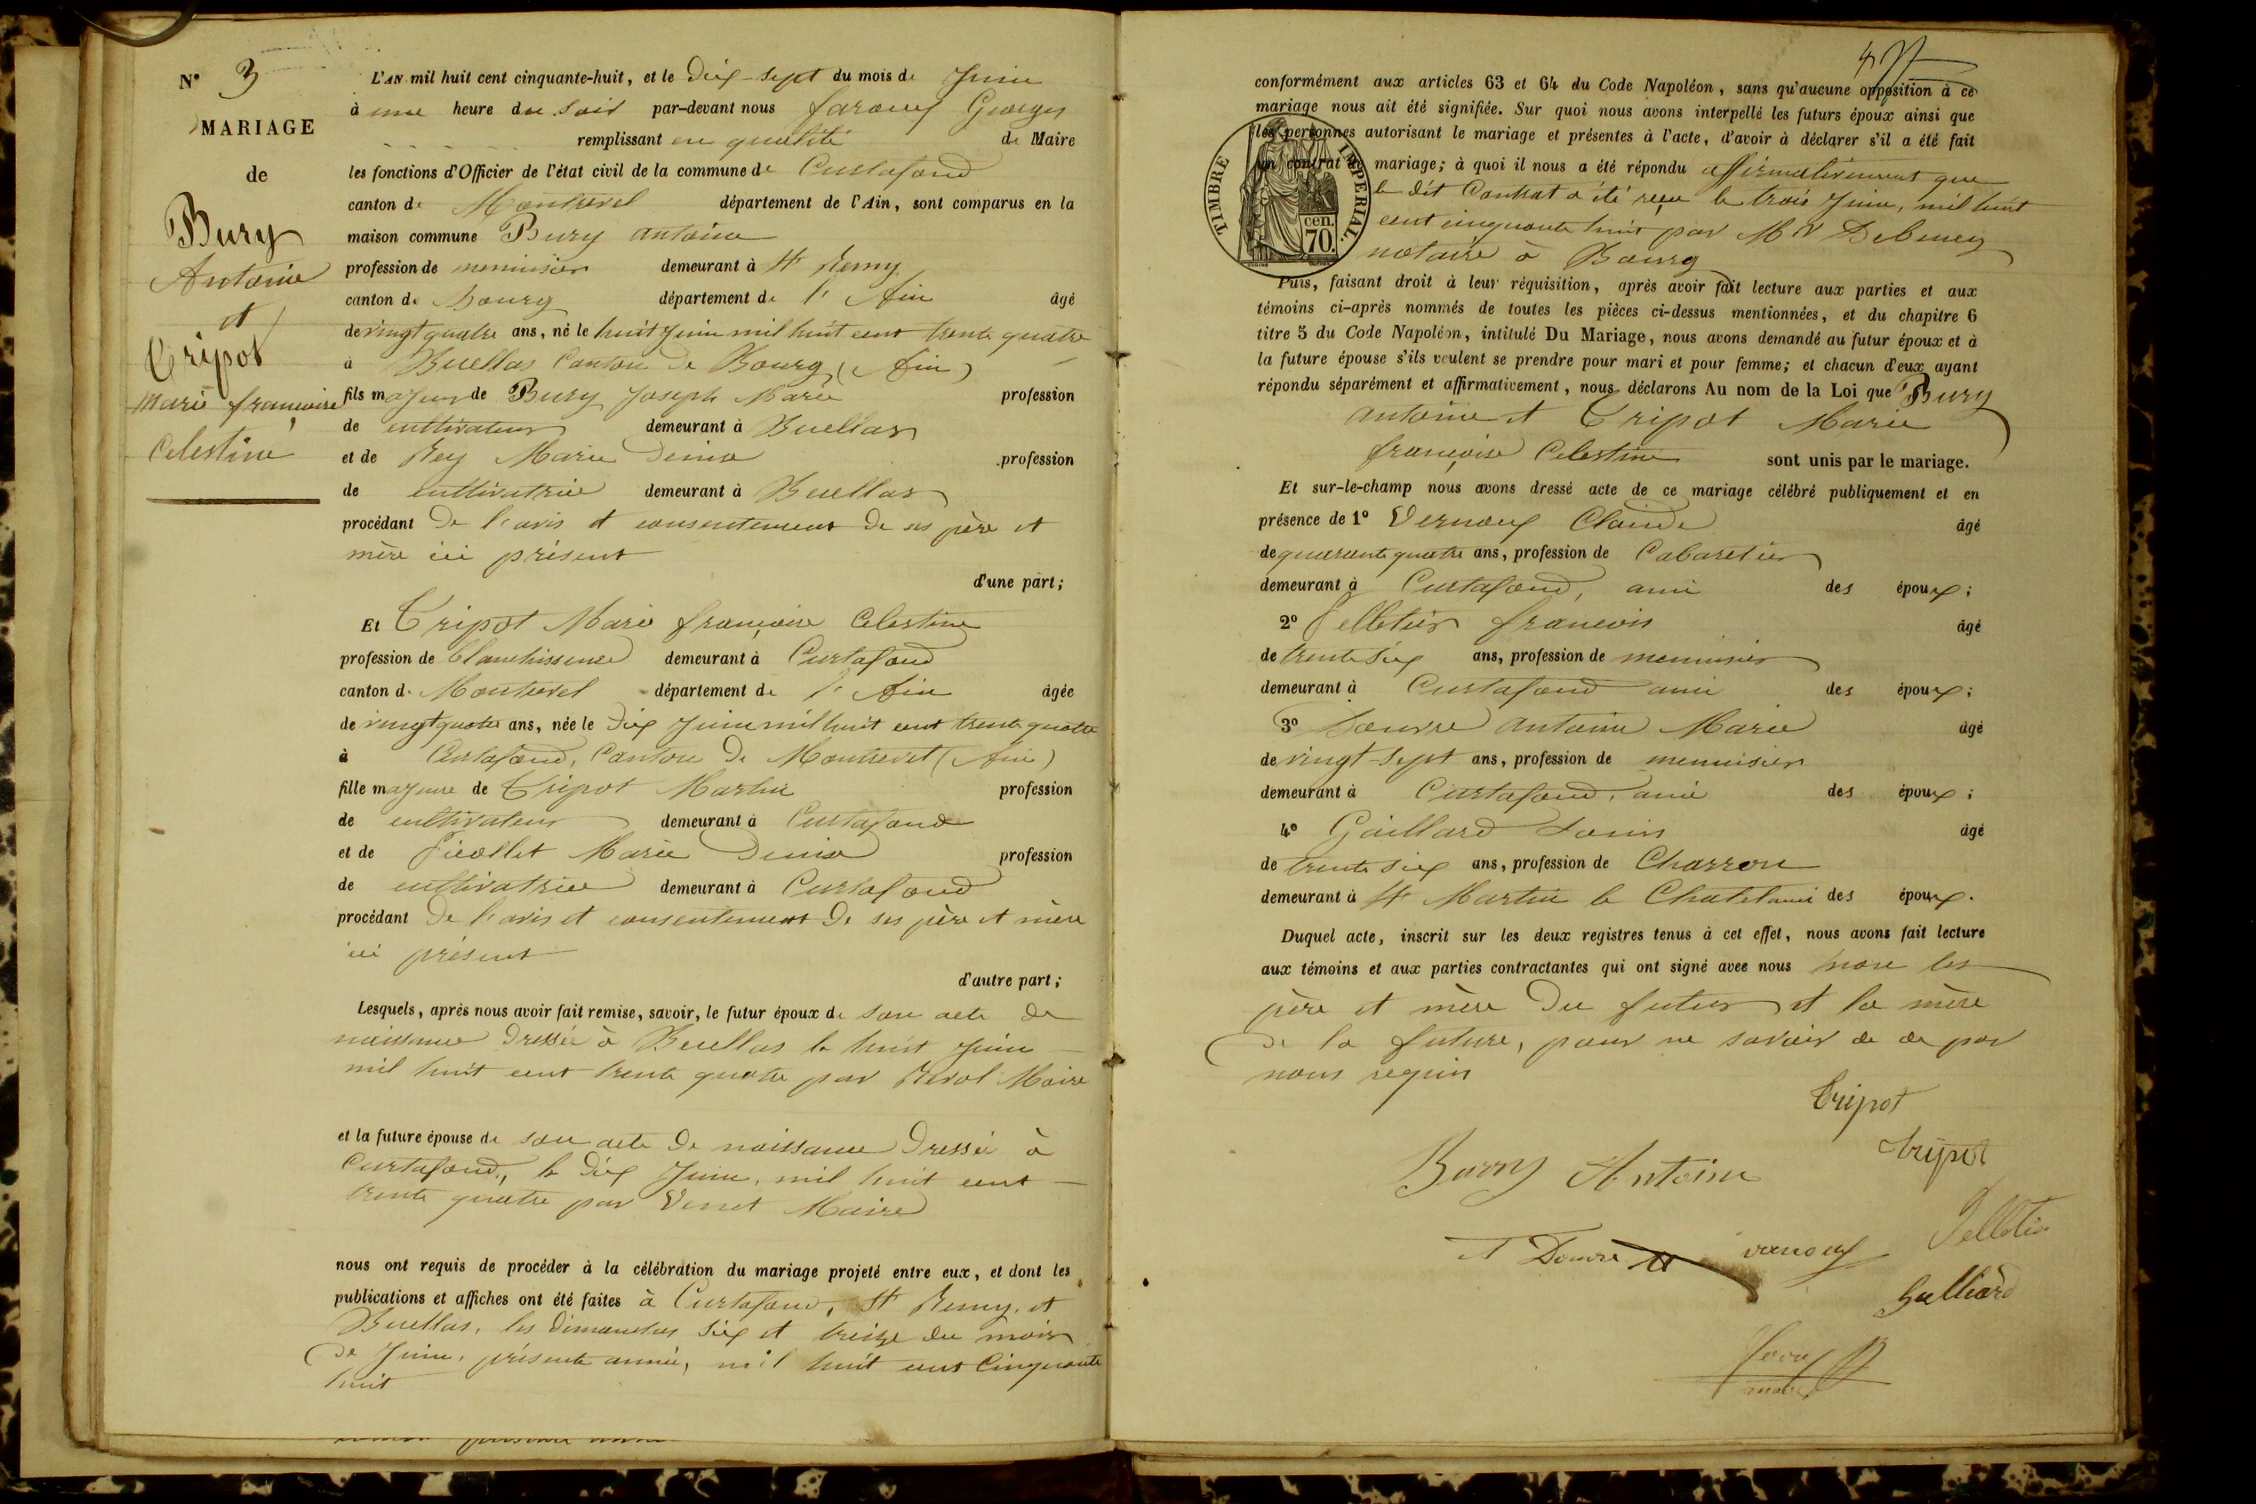 N° 3
MARIAGE
de
Bury
Antoine
et
Tripot
Marie françoise
Celestine
L'AN mil huit cent cinquante-huit, et le Dix-sept du mois de Juin
à une heure du soir par-devant nous Georges
remplissant en qualité de Maire
les fonctions d'Officier de l'état civil de la commune de Curtafond
canton de Montrevel département de l'Ain, sont comparus en la
maison commune Bury antoine
profession de menuisier demeurant à St Remy
canton de Bourg département de l'Ain âgé
de vingt quatre ans, né le huit Juin mil huit cent trente quatre
à Buellas Canton de Bourg (Ain)
fils majeur de Bury Joseph Marie profession
de cultivateur demeurant à Buellas
et de Rey Marie Denise profession
de cultivatrice demeurant à Buellas
procédant De l'avis et consentement de ses père et
mère ici présent
d'une part;
Et Tripot Marie françoise Celestine
profession de blanchisseuse demeurant à Curtafond
canton de Montrevel département de l'Ain âgée
de vingt quatre ans, née le Dix Juin mil huit cent trente quatre
à Curtafond, Canton De Montrevel (Ain)
fille majeure de Tripot Martin profession
de cultivateur demeurant à Curtafond
et de Picollet Marie Denise profession
de cultivatrice demeurant à Curtafond
procédant De l'avis et consentement De ses père et mère
ici présent
d'autre part;
Lesquels, après nous avoir fait remise, savoir, le futur époux de son acte de
naissance Dressé à Buellas le huit Juin
mil huit cent trente quatre par Maire
et la future épouse de son acte De naissance Dressé à
Curtafond, le Dix Juin, mil huit cent
trente quatre par Verset Maire
nous ont requis de procéder à la célébration du mariage projeté entre eux, et dont les
publications et affiches ont été faites à Curtafond, St Remy, et
Buellas, les dimanches six et treize du mois
De Juin, présente année, mil huit cent Cinquante
huit
conformément aux articles 63 et 64 du Code Napoléon, sans qu'aucune opposition à ce
mariage nous ait été signifiée. Sur quoi nous avons interpellé les futurs époux ainsi que
les personnes autorisant le mariage et présentes à l'acte, d'avoir à déclarer s'il a été fait
un contrat de mariage; à quoi il nous a été répondu affirmativement que
le dit Contrat a été reçu le trois Juin, mil huit
cent cinquante huit par Me Debeney
notaire à Bourg
TIMBRE IMPÉRIAL.
cen.
70.
Puis, faisant droit à leur réquisition, après avoir fait lecture aux parties et aux
témoins ci-après nommés de toutes les pièces ci-dessus mentionnées, et du chapitre 6
titre 5 du Code Napoléon, intitulé Du Mariage, nous avons demandé au futur époux et à
la future épouse s'ils veulent se prendre pour mari et pour femme; et chacun d'eux ayant
répondu séparément et affirmativement, nous déclarons Au nom de la Loi que Bury
antoine et Tripot Marie
françoise Celestine sont unis par le mariage.
Et sur-le-champ nous avons dressé acte de ce mariage célébré publiquement et en
présence de 1° Vernoux Claude âgé
de quarante quatre ans, profession de Cabaretier
demeurant à Curtafond, ami des époux;
2° Pelletier francois âgé
de trente six ans, profession de menuisier
demeurant à Curtafond ami des époux;
3° antoine Marie âgé
de vingt-sept ans, profession de menuisier
demeurant à Curtafond, ami des époux;
4° Gaillard Louis âgé
de trente six ans, profession de Charron
demeurant à St Martin le Chatel ami des époux.
Duquel acte, inscrit sur les deux registres tenus à cet effet, nous avons fait lecture
aux témoins et aux parties contractantes qui ont signé avec nous non les
père et mère du futur et la mère
De la future, pour ne savoir de ce par
nous requis
Tripot
tripot
Burry Antoine
vernoux
Pelletier
maire